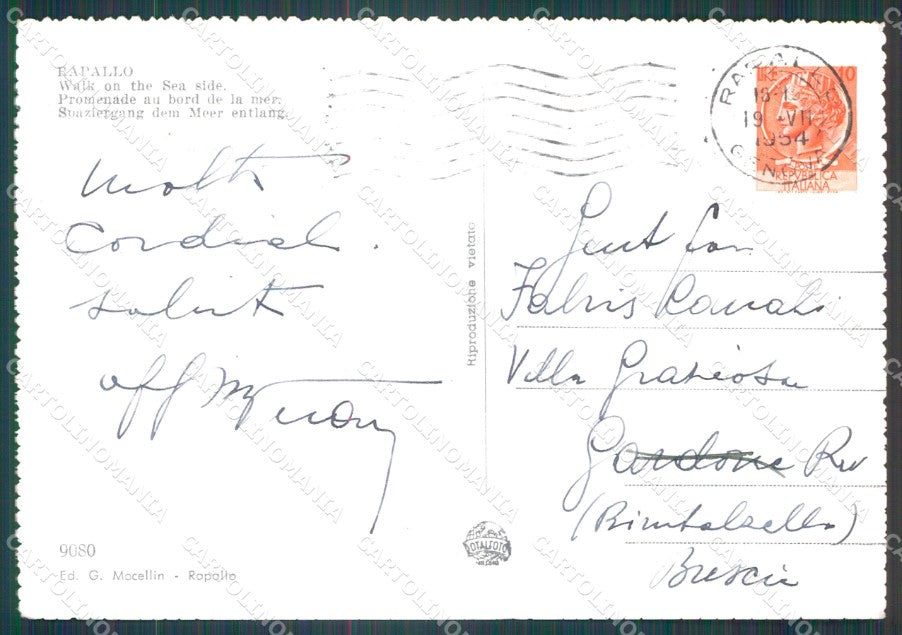 RAPALLO
Walk on the Sea side.
Promenade au bord de la mer.
Spaziergang dem Meer entlang.
19 -VII
1954
LIRE 10
REPVBBLICA
ITALIANA
Molti
cordiali
saluti
aff
Riproduzione vietata
Gent
Fabris
Villa Graziosa
Gardone Riv
Brescia
9080
Ed. G. Mocellin - Rapallo
TOTALFOTO
MILANO
CARTOLINOMANIA